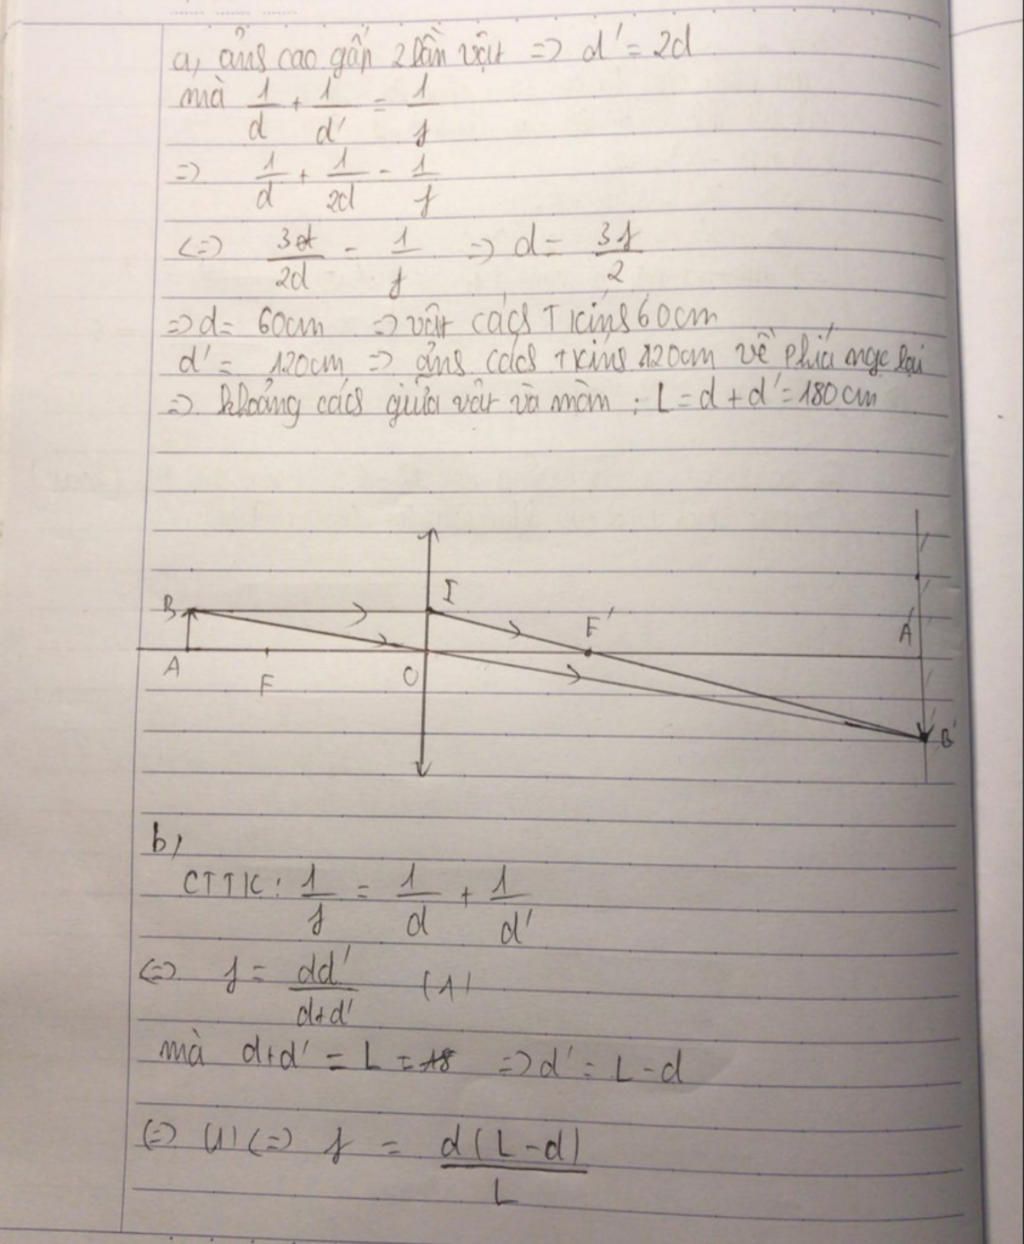 a, ảnh cao gấp 2 lần vật => d' = 2d
mà 1/d + 1/d' = 1/f
=> 1/d + 1/2d = 1/f
<=> 3/2d = 1/f => d = 3f/2
=> d = 60cm => vật cách TKính 60cm
d' = 120cm => ảnh cách TKính 120cm về phía ngc lại
=> khoảng cách giữa vật và màn : L = d + d' = 180 cm
B I F' A'
A F O B'
b,
CTTK : 1/f = 1/d + 1/d'
<=> f = dd'/d+d' (1)
mà d+d' = L => d' = L - d
<=> (1) <=> f = d(L-d)/L